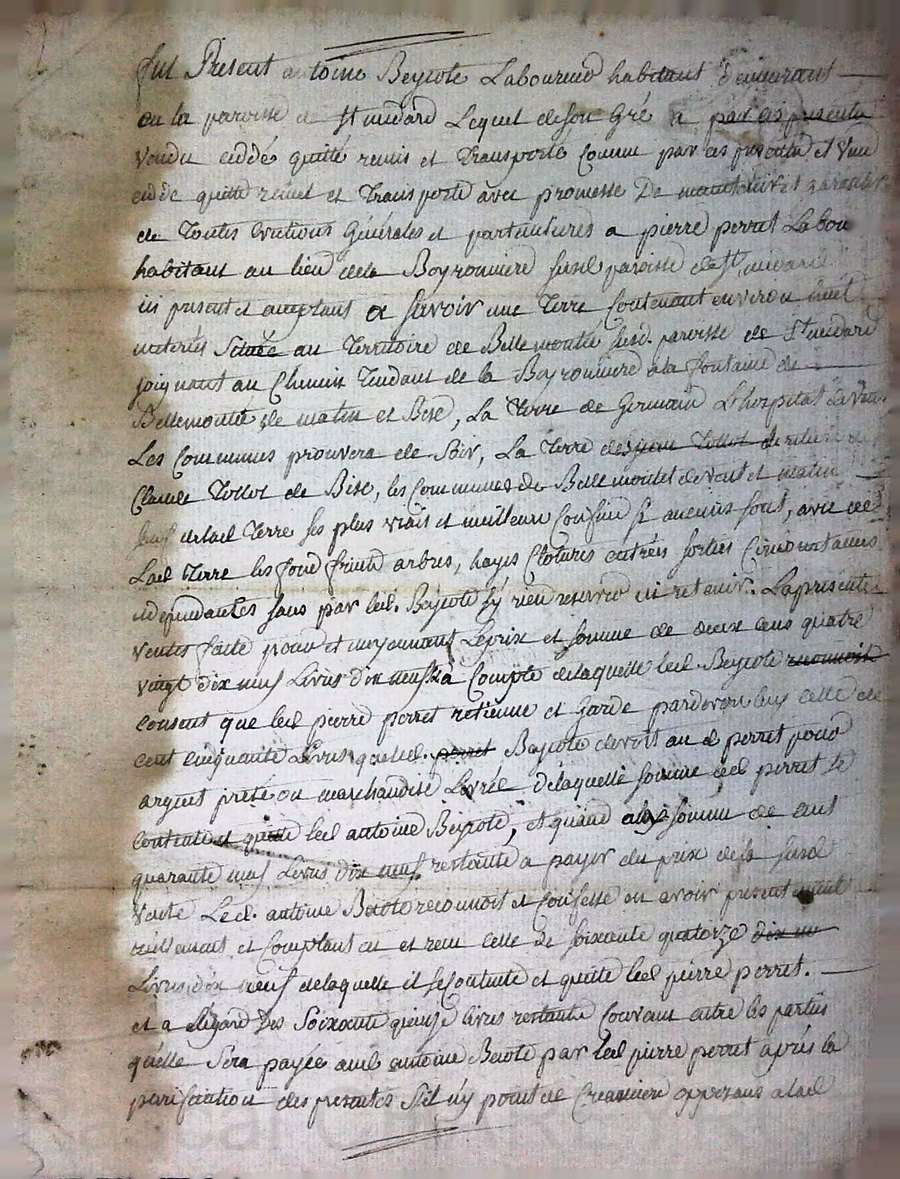 fut Present antoine Beyrote Laboureur habitant demeurant
en la paroisse de St medard Lequel de son Gré a par ces presentes
Vendu ceddé quitté remis et Transporté Comme par ces presentes il Vend
cedde quitte remet et Transporte avec promesse De maintenir et garantir
de Toutes evictions Générales et particulieres a pierre perret Labour
habitant au lieu de la Boyronniere susd paroisse de St medard
ici present et acceptant a Savoir une Terre Contenant environ huit
meterés Située au Territoire de Bellemontée susd. paroisse de St medard
joignant au Chemin Tendant de la Boyronniere a la fontaine de
Bellemonté de matin et Bise, La Terre de Germain L'horpital
Les Communes prouvera de Soir, La Terre de
Claude Tollot de Bise, les Communes de Bellemontet de vent et matin
sauf de lad Terre ses plus vrais et meilleurs Confins si aucuns sont, avec de
Lad Terre les fond fruits arbres, hayes Clotures entrées sorties Circonstances
et dependantes sans par led. Beyrote s'y rien reserver ni retenir. La presente
Ventes faite pour et moyennant Le prix et somme de deux cens quatre
Vingt dix neuf Livres dix neuf a Compte de laquelle led Beyrote
consent que led pierre perret retienne et garde pardevers luy celle de
cent cinquante Livres que led. perret Beyrote devoit au d perret pour
argent prété ou marchandise Livrée de laquelle somme led perret se
Contente et quitte led antoine Beyrote, et quand a la somme de cent
quarante neuf Livres dix neuf restante a payer du prix de la susd
Vente Led. antoine Beyrote reconnoit et confesse en avoir presentement
réellement et Comptant eu et recu celle de soixante quatorze dix neuf
Livres dix neuf de laquelle il se Contente et quitte led pierre perret.
et a l'égard des Soixante quinze livres restante Convenu entre les parties
qu'elle Sera payée aud antoine Beyrote par led pierre perret après la
purification des presentes S'il n'y point de Creancier opposans a lad